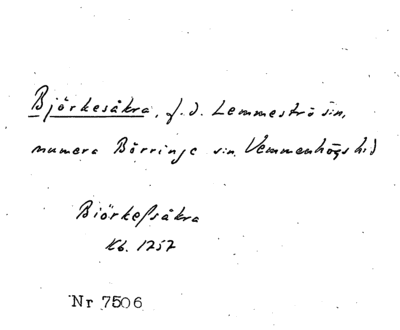 Björkesåkra, f.d. Lemmeströ sn,
numera Börringe sn. Vemmenhögs hd
Biörkeſsåkra
Kb. 1757
Nr 7506